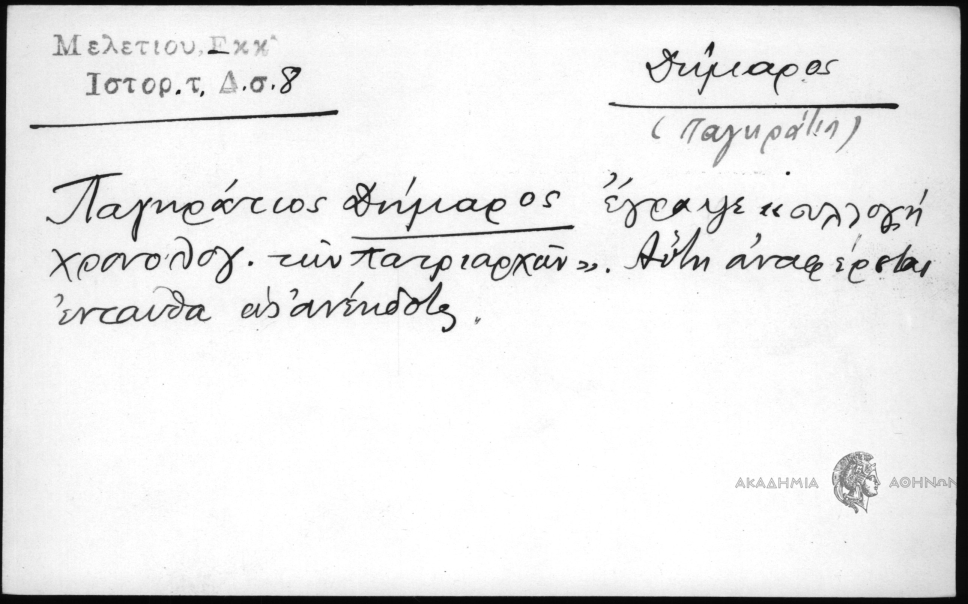 Μελετίου, Εκκλ
Ιστορ. τ, Δ.σ. 8
Δήμαρος
(Παγκράτιος)
Παγκράτιος Δήμαρος ἔγραψε «συλλογή
χρονολογ. τῶν πατριαρχῶν». Αὕτη ἀναφέρεται
ἐνταῦθα ὡς ἀνέκδοτος.
ΑΚΑΔΗΜΙΑ ΑΘΗΝΩΝ